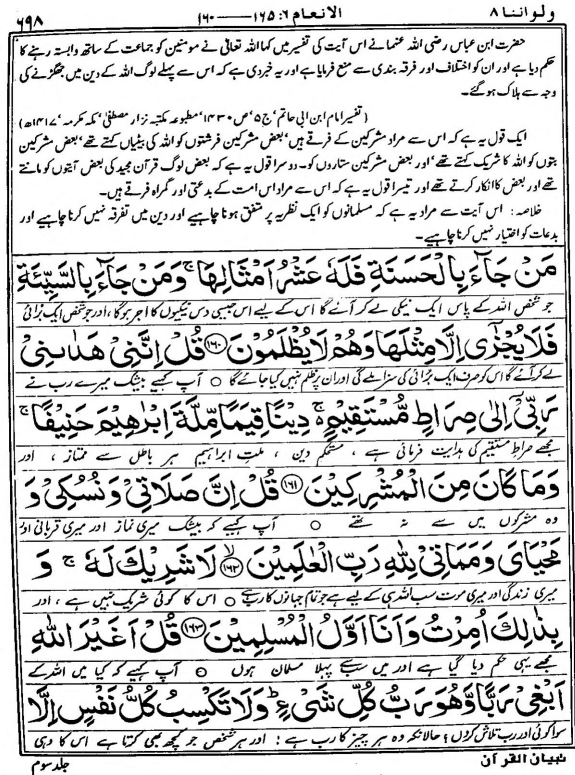 ولو اننا ۸ الانعام ۶: ۱۶۵ —— ۱۶۰ ۶۹۸
حضرت ابن عباس رضی اللہ عنہما نے اس آیت کی تفسیر میں کہا اللہ تعالیٰ نے مومنین کو جماعت کے ساتھ وابستہ رہنے کا
حکم دیا ہے اور ان کو اختلاف اور فرقہ بندی سے منع فرمایا ہے اور یہ خبر دی ہے کہ اس سے پہلے لوگ اللہ کے دین میں جھگڑنے کی
وجہ سے ہلاک ہو گئے۔
(تفسیر امام ابن ابی حاتم، ج ۵، ص ۱۴۳۰، مطبوعہ مکتبہ نزار مصطفیٰ، مکہ مکرمہ، ۱۴۱۷ھ)
ایک قول یہ ہے کہ اس سے مراد مشرکین کے فرقے ہیں، بعض مشرکین فرشتوں کو اللہ کی بیٹیاں کہتے تھے، بعض مشرکین
بتوں کو اللہ کا شریک کہتے تھے، اور بعض مشرکین ستاروں کو۔ دوسرا قول یہ ہے کہ بعض لوگ قرآن مجید کی بعض آیتوں کو مانتے
تھے اور بعض کا انکار کرتے تھے اور تیسرا قول یہ ہے کہ اس سے مراد اس امت کے بدعتی اور گمراہ فرقے ہیں۔
خلاصہ: اس آیت سے مراد یہ ہے کہ مسلمانوں کو ایک نظریہ پر متفق ہونا چاہیے اور دین میں تفرقہ نہیں کرنا چاہیے اور
بدعات کو اختیار نہیں کرنا چاہیے۔
مَنْ جَآءَ بِالْحَسَنَةِ فَلَهٗ عَشْرُ اَمْثَالِهَا ۚ وَمَنْ جَآءَ بِالسَّيِّئَةِ
جو شخص اللہ کے پاس ایک نیکی لے کر آئے گا اس کے لیے اس جیسی دس نیکیوں کا اجر ہوگا، اور جو شخص ایک برائی
فَلَا يُجْزٰۤى اِلَّا مِثْلَهَا وَهُمْ لَا يُظْلَمُوْنَ ۝۱۶۰ قُلْ اِنَّنِيْ هَدٰىنِيْ
لے کر آئے گا اس کو صرف ایک برائی کی سزا ملے گی اور ان پر ظلم نہیں کیا جائے گا ○ آپ کہیے بیشک میرے رب نے
رَبِّيْۤ اِلٰى صِرَاطٍ مُّسْتَقِيْمٍ ۚ دِيْنًا قِيَمًا مِّلَّةَ اِبْرٰهِيْمَ حَنِيْفًا ۚ
مجھے صراط مستقیم کی ہدایت فرمائی ہے، مستحکم دین، ملت ابراہیم ہر باطل سے ممتاز، اور
وَمَا كَانَ مِنَ الْمُشْرِكِيْنَ ۝۱۶۱ قُلْ اِنَّ صَلَاتِيْ وَنُسُكِيْ وَ
وہ مشرکوں میں سے نہ تھے ○ آپ کہیے کہ بیشک میری نماز اور میری قربانی اور
مَحْيَايَ وَمَمَاتِيْ لِلّٰهِ رَبِّ الْعٰلَمِيْنَ ۝۱۶۲ لَا شَرِيْكَ لَهٗ ۚ وَ
میری زندگی اور میری موت سب اللہ ہی کے لیے ہے جو تمام جہانوں کا رب ہے ○ اس کا کوئی شریک نہیں ہے، اور
بِذٰلِكَ اُمِرْتُ وَاَنَا اَوَّلُ الْمُسْلِمِيْنَ ۝۱۶۳ قُلْ اَغَيْرَ اللّٰهِ
مجھے یہی حکم دیا گیا ہے اور میں سب سے پہلا مسلمان ہوں ○ آپ کہیے کہ کیا میں اللہ کے
اَبْغِيْ رَبًّا وَّهُوَ رَبُّ كُلِّ شَيْءٍ ؕ وَلَا تَكْسِبُ كُلُّ نَفْسٍ اِلَّا
سوا کوئی اور رب تلاش کروں؟ حالانکہ وہ ہر چیز کا رب ہے؛ اور ہر شخص جو کچھ بھی کرتا ہے اس کا وہی
تبیان القرآن جلد سوم